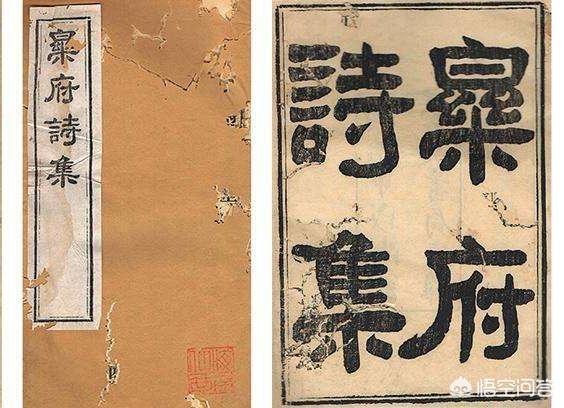 樂府詩集
樂府
詩集
悟空问答